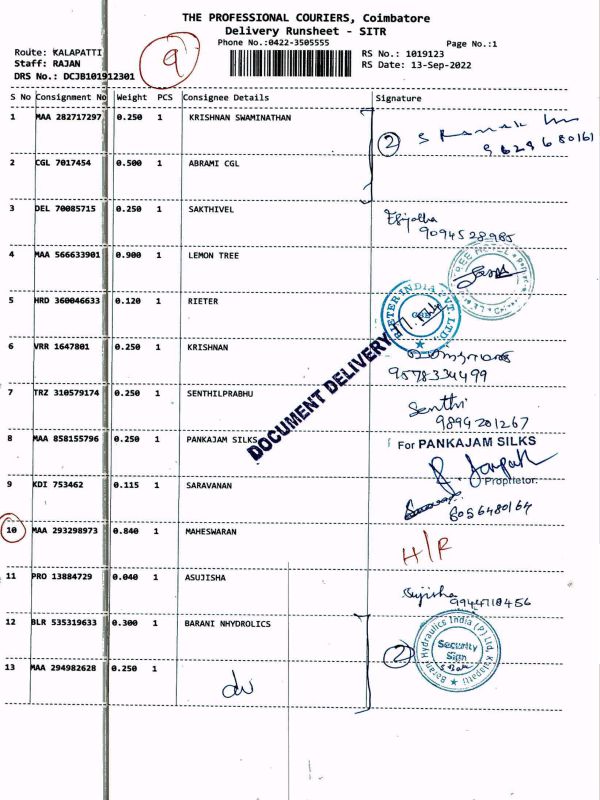 THE PROFESSIONAL COURIERS, Coimbatore
Delivery Runsheet - SITR
Phone No.:0422-3505555
Page No.:1
Route: KALAPATTI
Staff: RAJAN
DRS No.: DCJB101912301
9
RS No.: 1019123
RS Date: 13-Sep-2022
S No Consignment No Weight PCS Consignee Details Signature
1 MAA 282717297 0.250 1 KRISHNAN SWAMINATHAN
2
2 CGL 7017454 0.500 1 ABRAMI CGL
3 DEL 70085715 0.250 1 SAKTHIVEL
9094528985
4 MAA 566633901 0.900 1 LEMON TREE
5 HRD 360046633 0.120 1 RIETER
RIETER INDIA PVT. LTD.
DOCUMENT DELIVERY
6 VRR 1647801 0.250 1 KRISHNAN
9578334499
7 TRZ 310579174 0.250 1 SENTHILPRABHU
Senthi
9894201267
8 MAA 858155796 0.250 1 PANKAJAM SILKS
For PANKAJAM SILKS
Proprietor.
9 KDI 753462 0.115 1 SARAVANAN
8056480164
10 MAA 293298973 0.840 1 MAHESWARAN
H/R
11 PRO 13884729 0.040 1 ASUJISHA
Sujisha
9944718456
12 BLR 535319633 0.300 1 BARANI NHYDROLICS
2
Barani Hydraulics India (P) Ltd, Kalapatti
Security
Sign
13 MAA 294982628 0.250 1